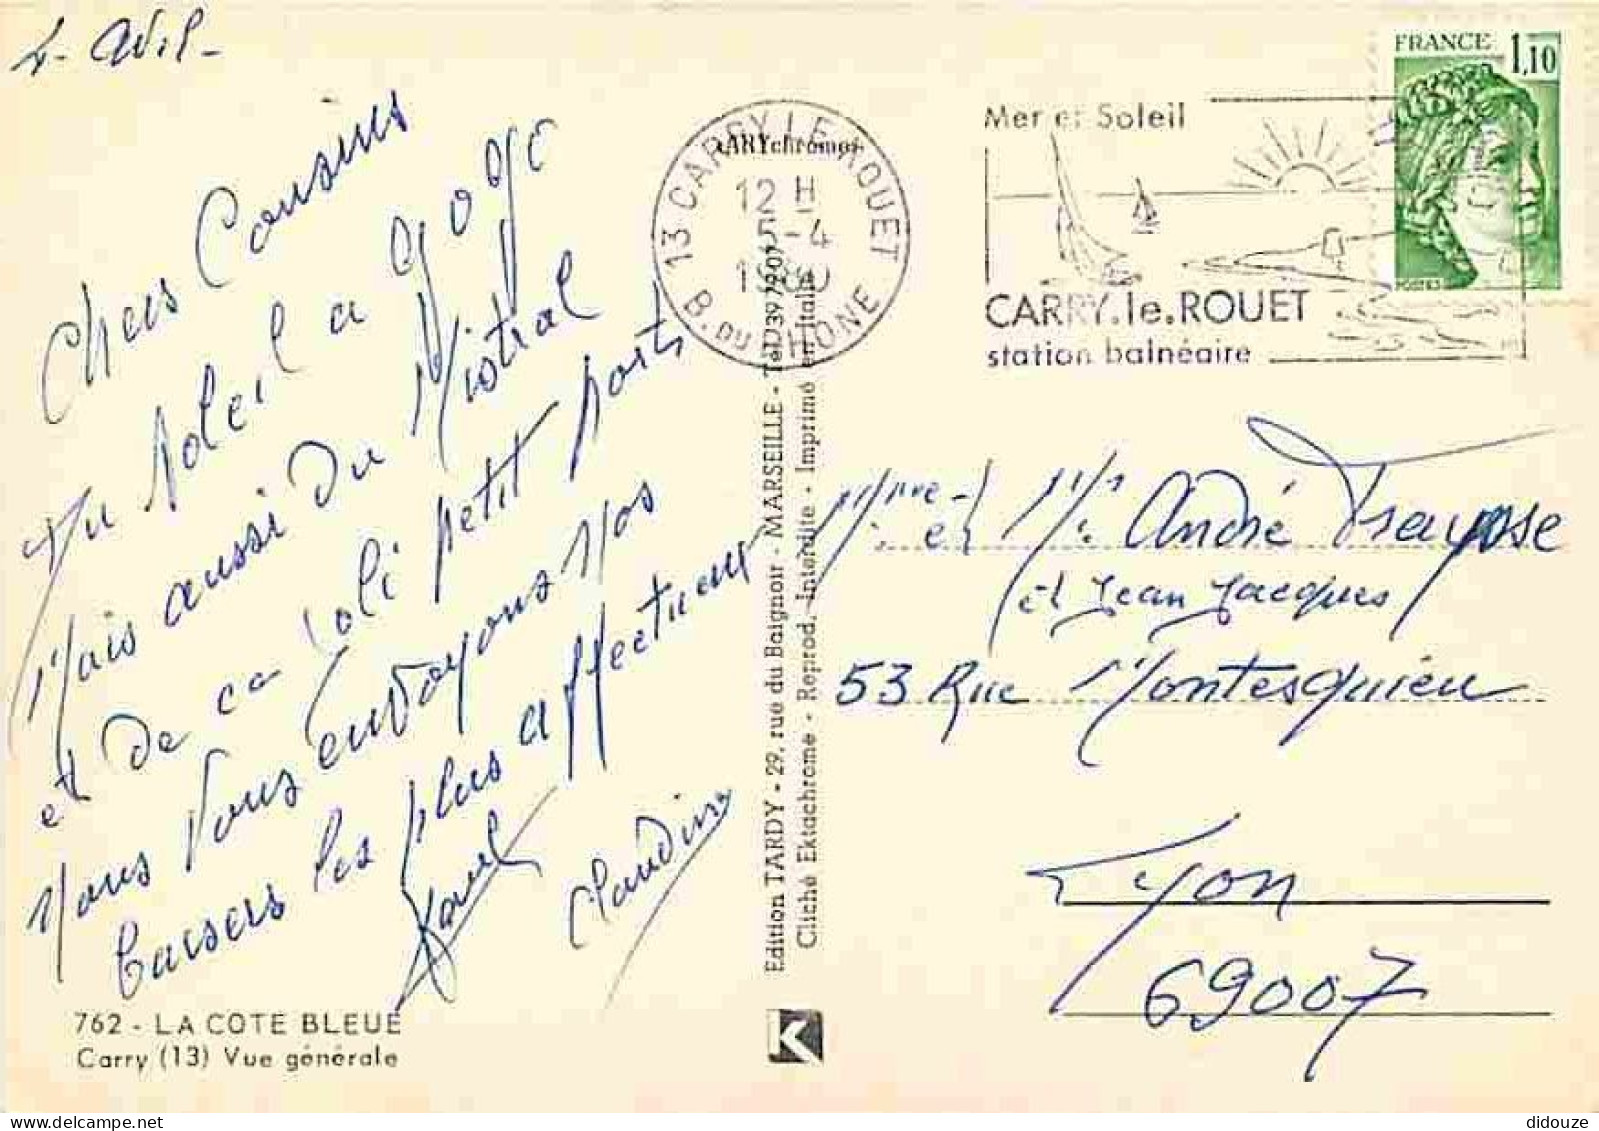 4 - Avril -
Chers Cousins
Du Soleil a gogo
Mais aussi du Mistral
et de ca joli petit ports
nous vous envoyons nos
baisers les plus affectueux
Claudine
762 - LA COTE BLEUE
Carry (13) Vue générale
Edition TARDY - 29, rue du Baignoir - MARSEILLE - Tél.
Cliché Ektachrome - Reprod. Interdite - Imprimé en Italie
K
13 CARRY LE ROUET
12 H
5-4
1980
B. DU RHONE
Mer et Soleil
CARRY.le.ROUET
station balnéaire
FRANCE 1,10
POSTES
Mme et Mr André
et Jean Jacques
53 Rue Montesquieu
Lyon
69007
didouze